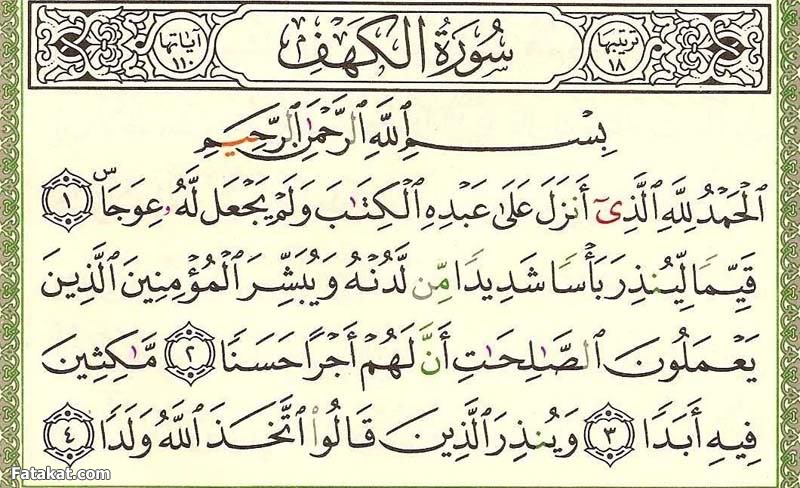 ترتيبها ١٨ سُورَةُ الكَهْفِ آيَاتها ١١٠
بِسْمِ ٱللَّهِ ٱلرَّحْمَٰنِ ٱلرَّحِيمِ
ٱلْحَمْدُ لِلَّهِ ٱلَّذِىٓ أَنزَلَ عَلَىٰ عَبْدِهِ ٱلْكِتَٰبَ وَلَمْ يَجْعَل لَّهُۥ عِوَجَاۜ ١
قَيِّمًا لِّيُنذِرَ بَأْسًا شَدِيدًا مِّن لَّدُنْهُ وَيُبَشِّرَ ٱلْمُؤْمِنِينَ ٱلَّذِينَ
يَعْمَلُونَ ٱلصَّٰلِحَٰتِ أَنَّ لَهُمْ أَجْرًا حَسَنًا ٢ مَّٰكِثِينَ
فِيهِ أَبَدًا ٣ وَيُنذِرَ ٱلَّذِينَ قَالُوا۟ ٱتَّخَذَ ٱللَّهُ وَلَدًا ٤
Fatakat.com